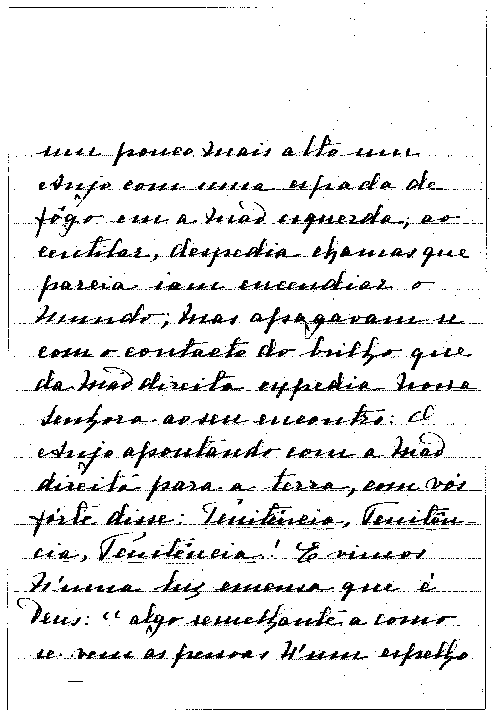 um pouco mais alto um
Anjo com uma espada de
fôgo em a mão esquerda; ao
centilar, despedia chamas que
parecia iam encendiar o
mundo; mas apagavam-se
com o contacto do brilho que
da mão direita expedia Nossa
Senhora ao seu encontro: O
Anjo apontando com a mão
direita para a terra, com voz
forte disse: Penitência, Penitên-
cia, Penitência! E vimos
n'uma luz emensa que é
Deus: "algo semelhante a como
se vem as pessoas n'um espelho